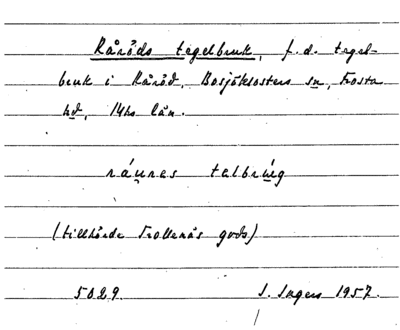 Råröds tegelbruk, f.d. tegel-
bruk i Råröd, Bosjöklosters sn, Frosta
hd, Mhs län.
ráu̯nes talbrúeg
(tillhörde Trollenäs gods)
5029. S. Ingers 1957.